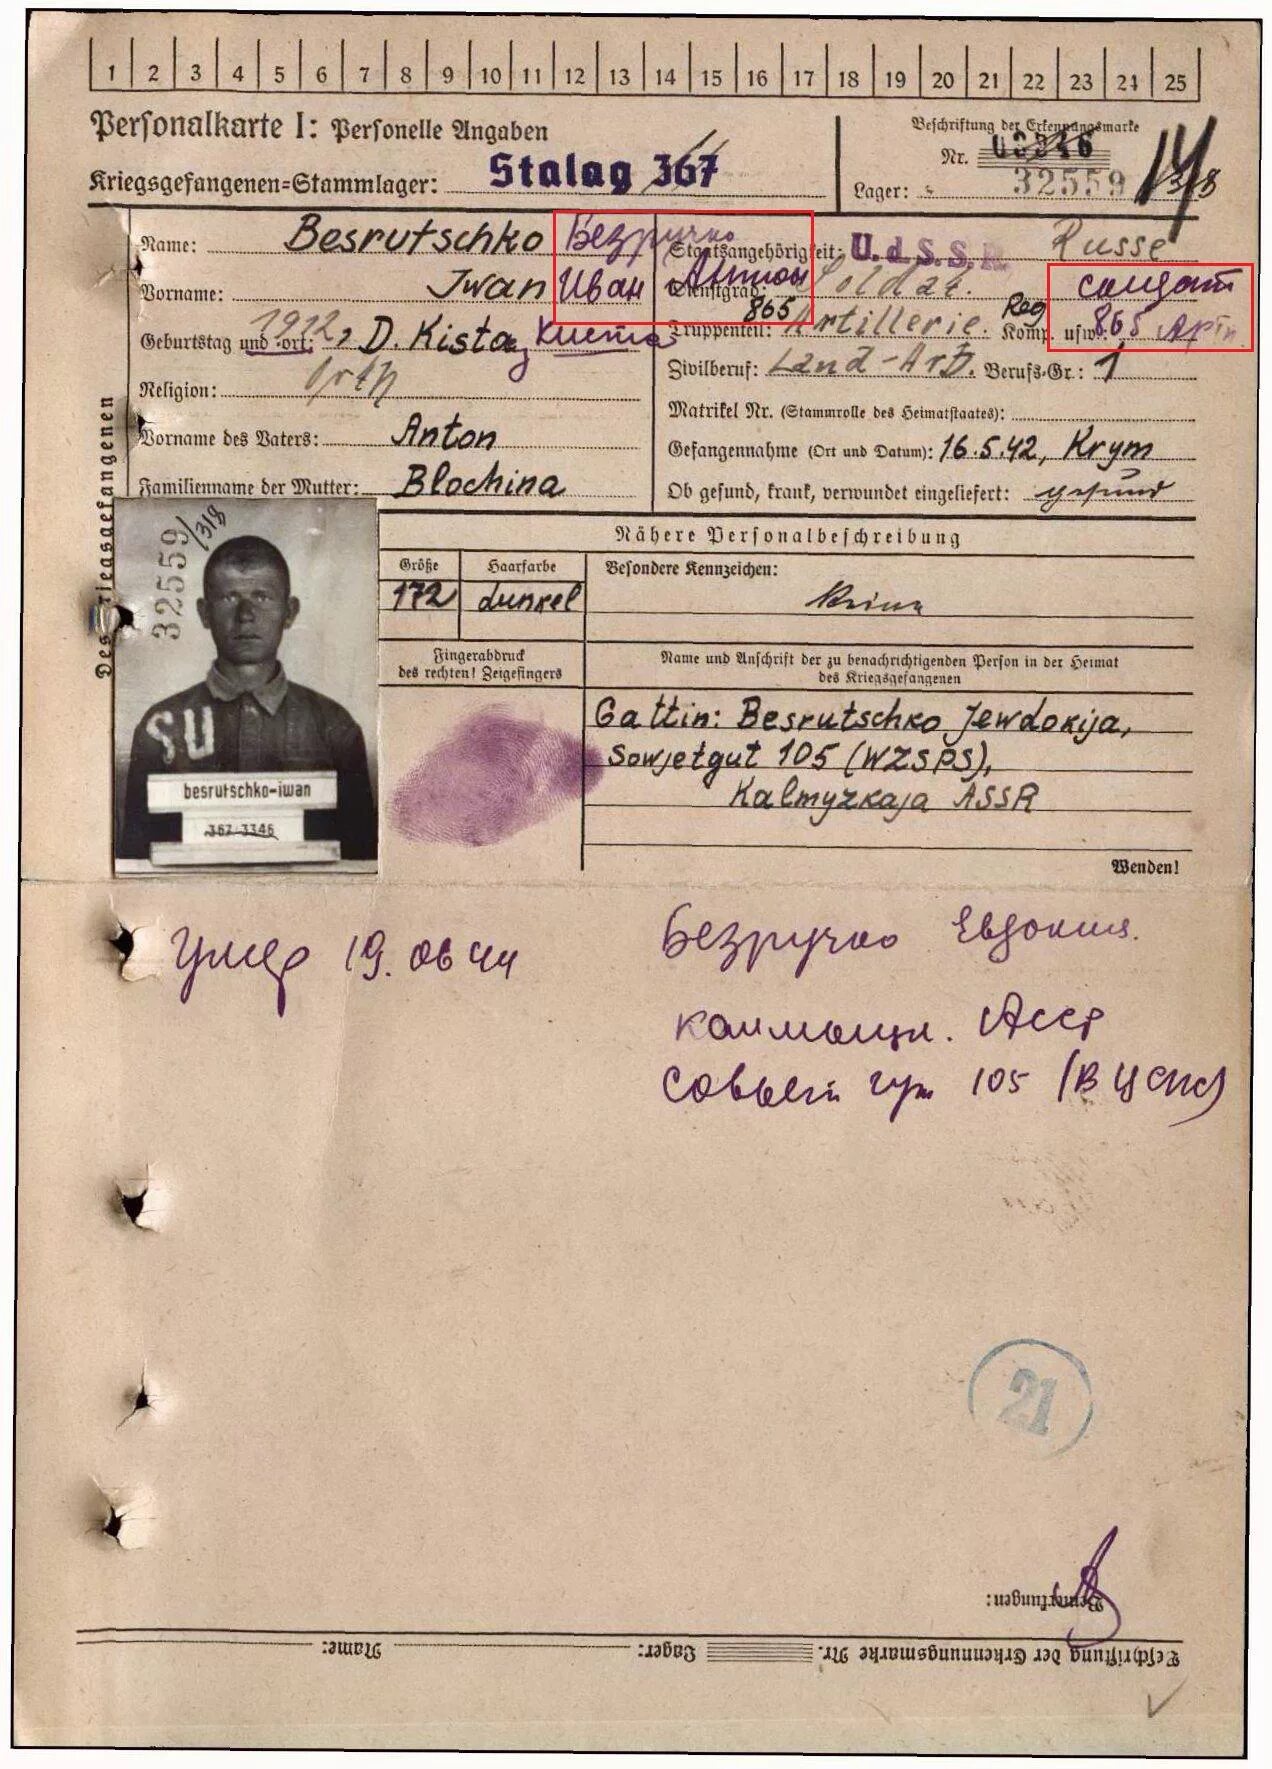 1 2 3 4 5 6 7 8 9 10 11 12 13 14 15 16 17 18 19 20 21 22 23 24 25
Personalkarte I: Personelle Angaben
Kriegsgefangenen=Stammlager: Stalag 367
Beschriftung der Erkennungsmarke
Nr. 03346
32559
Lager: 318
Des Kriegsgefangenen
Name: Besrutschko Безручко
Vorname: Jwan Иван Антон
Geburtstag und =ort: 1912, D. Kista, Киста
Religion: Orth
Vorname des Vaters: Anton
Familienname der Mutter: Blochina
Staatsangehörigkeit: U.d.S.S.R. Russe
Dienstgrad: Soldat. солдат
865
Truppenteil: Artillerie. Reg Komp. usw.: 865 Арт.
Zivilberuf: Land-Arb. Berufs-Gr.: 1
Matrikel Nr. (Stammrolle des Heimatstaates):
Gefangennahme (Ort und Datum): 16.5.42, Krym
Ob gesund, krank, verwundet eingeliefert: gesund
32559/318
SU
besrutschko-iwan
367 3346
Nähere Personalbeschreibung
Größe Haarfarbe Besondere Kennzeichen:
172 dunkel
Fingerabdruck
des rechten! Zeigefingers
Name und Anschrift der zu benachrichtigenden Person in der Heimat
des Kriegsgefangenen
Gattin: Besrutschko Jewdokija,
Sowjetgut 105 (WZSPS),
Kalmyzkaja ASSR
Wenden!
Умер 19.06 44
Безручко Евдокия.
калмыцк. АССР
совьет гут 105 (ВЦСПС)
21
Bemerkungen:
Beschriftung der Erkennungsmarke Nr. Lager: Name: